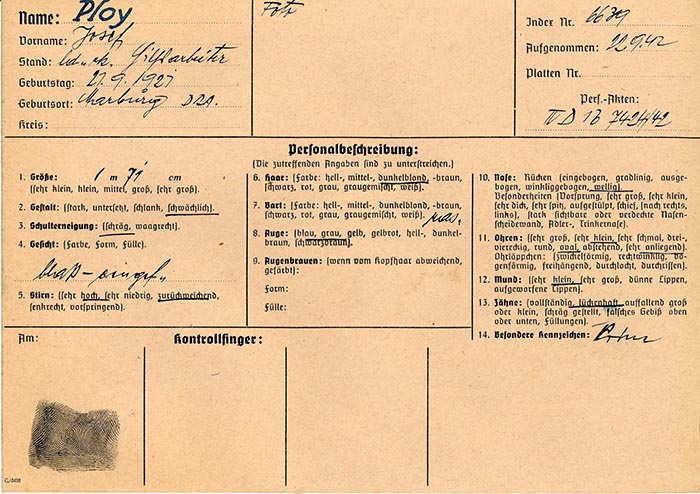 Name: Ploy
Vorname: Josef
Stand: led. rk. Hilfsarbeiter
Geburtstag: 27.9.1921
Geburtsort: Marburg
Kreis:
Foto
Index Nr. 6639
Aufgenommen: 22.9.42
Platten Nr.
Pers.-Akten:
IV D 1b 7424/42
Personalbeschreibung:
(Die zutreffenden Angaben sind zu unterstreichen.)
1. Größe: 1 m 71 cm
(sehr klein, klein, mittel, groß, sehr groß).
2. Gestalt: (stark, untersetzt, schlank, schwächlich).
3. Schulterneigung: (schräg, waagrecht).
4. Gesicht: (Farbe, Form, Fülle).
blaß – eingef.
5. Stirn: (sehr hoch, sehr niedrig, zurückweichend,
senkrecht, vorspringend).
6. Haar: (Farbe: hell-, mittel-, dunkelblond, -braun,
schwarz, rot, grau, graugemischt, weiß).
7. Bart: (Farbe: hell-, mittel-, dunkelblond, -braun,
schwarz, rot, grau, graugemischt, weiß). ras.
8. Auge: (blau, grau, gelb, gelbrot, hell-, dunkel-
braun, schwarzbraun).
9. Augenbrauen: (wenn vom Kopfhaar abweichend,
gefärbt):
Form:
Fülle:
10. Nase: Rücken (eingebogen, gradlinig, ausge-
bogen, winkliggebogen, wellig).
Besonderheiten (Vorsprung, sehr groß, sehr klein,
sehr dick, sehr spitz, aufgestülpt, schief, (nach rechts,
links), stark sichtbare oder verdeckte Nasen-
scheidewand, Adler-, Trinkernase).
11. Ohren: (sehr groß, sehr klein, sehr schmal, drei-,
viereckig, rund, oval, abstehend, sehr anliegend).
Ohrläppchen: (zwickelförmig, rechtwinklig, bo-
genförmig, freihängend, durchlocht, durchrissen).
12. Mund: (sehr klein, sehr groß, dünne Lippen,
aufgeworfene Lippen).
13. Zähne: (vollständig, lückenhaft, auffallend groß
oder klein, schräg gestellt, falsches Gebiß oben
oder unten, Füllungen).
14. Besondere Kennzeichen:
Am:
Kontrollfinger: